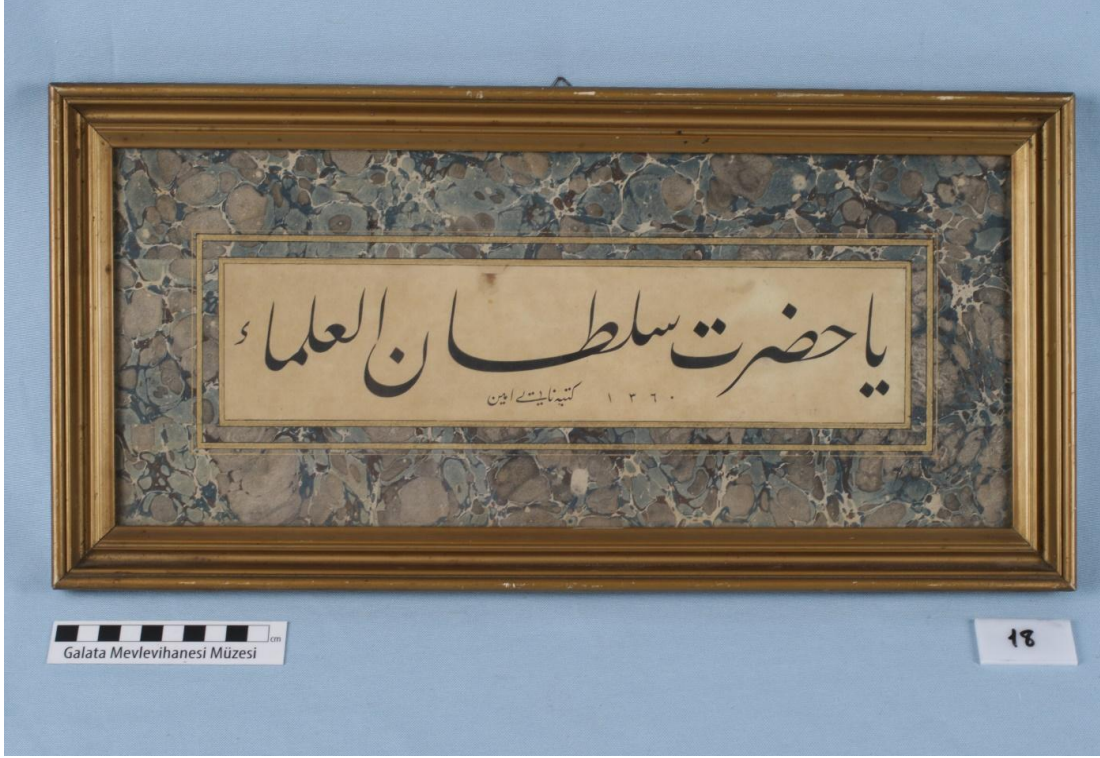 يا حضرت سلطان العلماء
١٣٦٠ كتبه نایی امین
cm
Galata Mevlevihanesi Müzesi
18